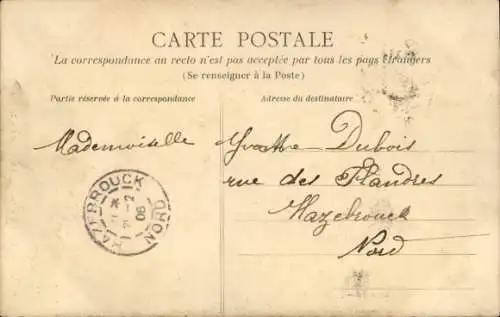 CARTE POSTALE
La correspondance au recto n'est pas acceptée par tous les pays étrangers
(Se renseigner à la Poste)
Partie réservée à la correspondance
Adresse du destinataire
Mademoiselle
Yvonne Dubois
rue des Flandres
Hazebrouck
Nord
HAZEBROUCK
2
06
NORD